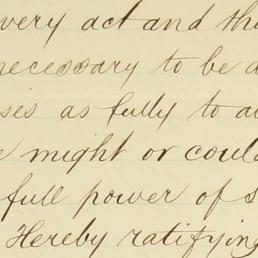 very act and th
necessary to be d
ses as fully to a
might or could
full power of s
Hereby ratifying